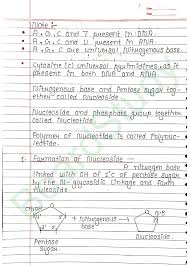 Date
Page
Note :-
• A, G, C and T present in DNA.
• A, G, C and U present in RNA.
• A, G, C are universal Nitrogenous base.
Cytosine (C) universal pyrimidines, as it
present in both DNA and RNA.
Nitrogenous base and Pentose sugar tog-
ether called nucleoside.
Nucleoside and phosphate group together
called nucleotide.
Polymer of nucleotide is called Polynuc-
leotide.
1. Formation of Nucleoside
A nitrogen base
linked with OH of 1'C of pentose sugar
by the N-glycosidic linkage and form
nucleoside.
+ Nitrogenous →
base
Pentose
Sugar
Nucleoside.